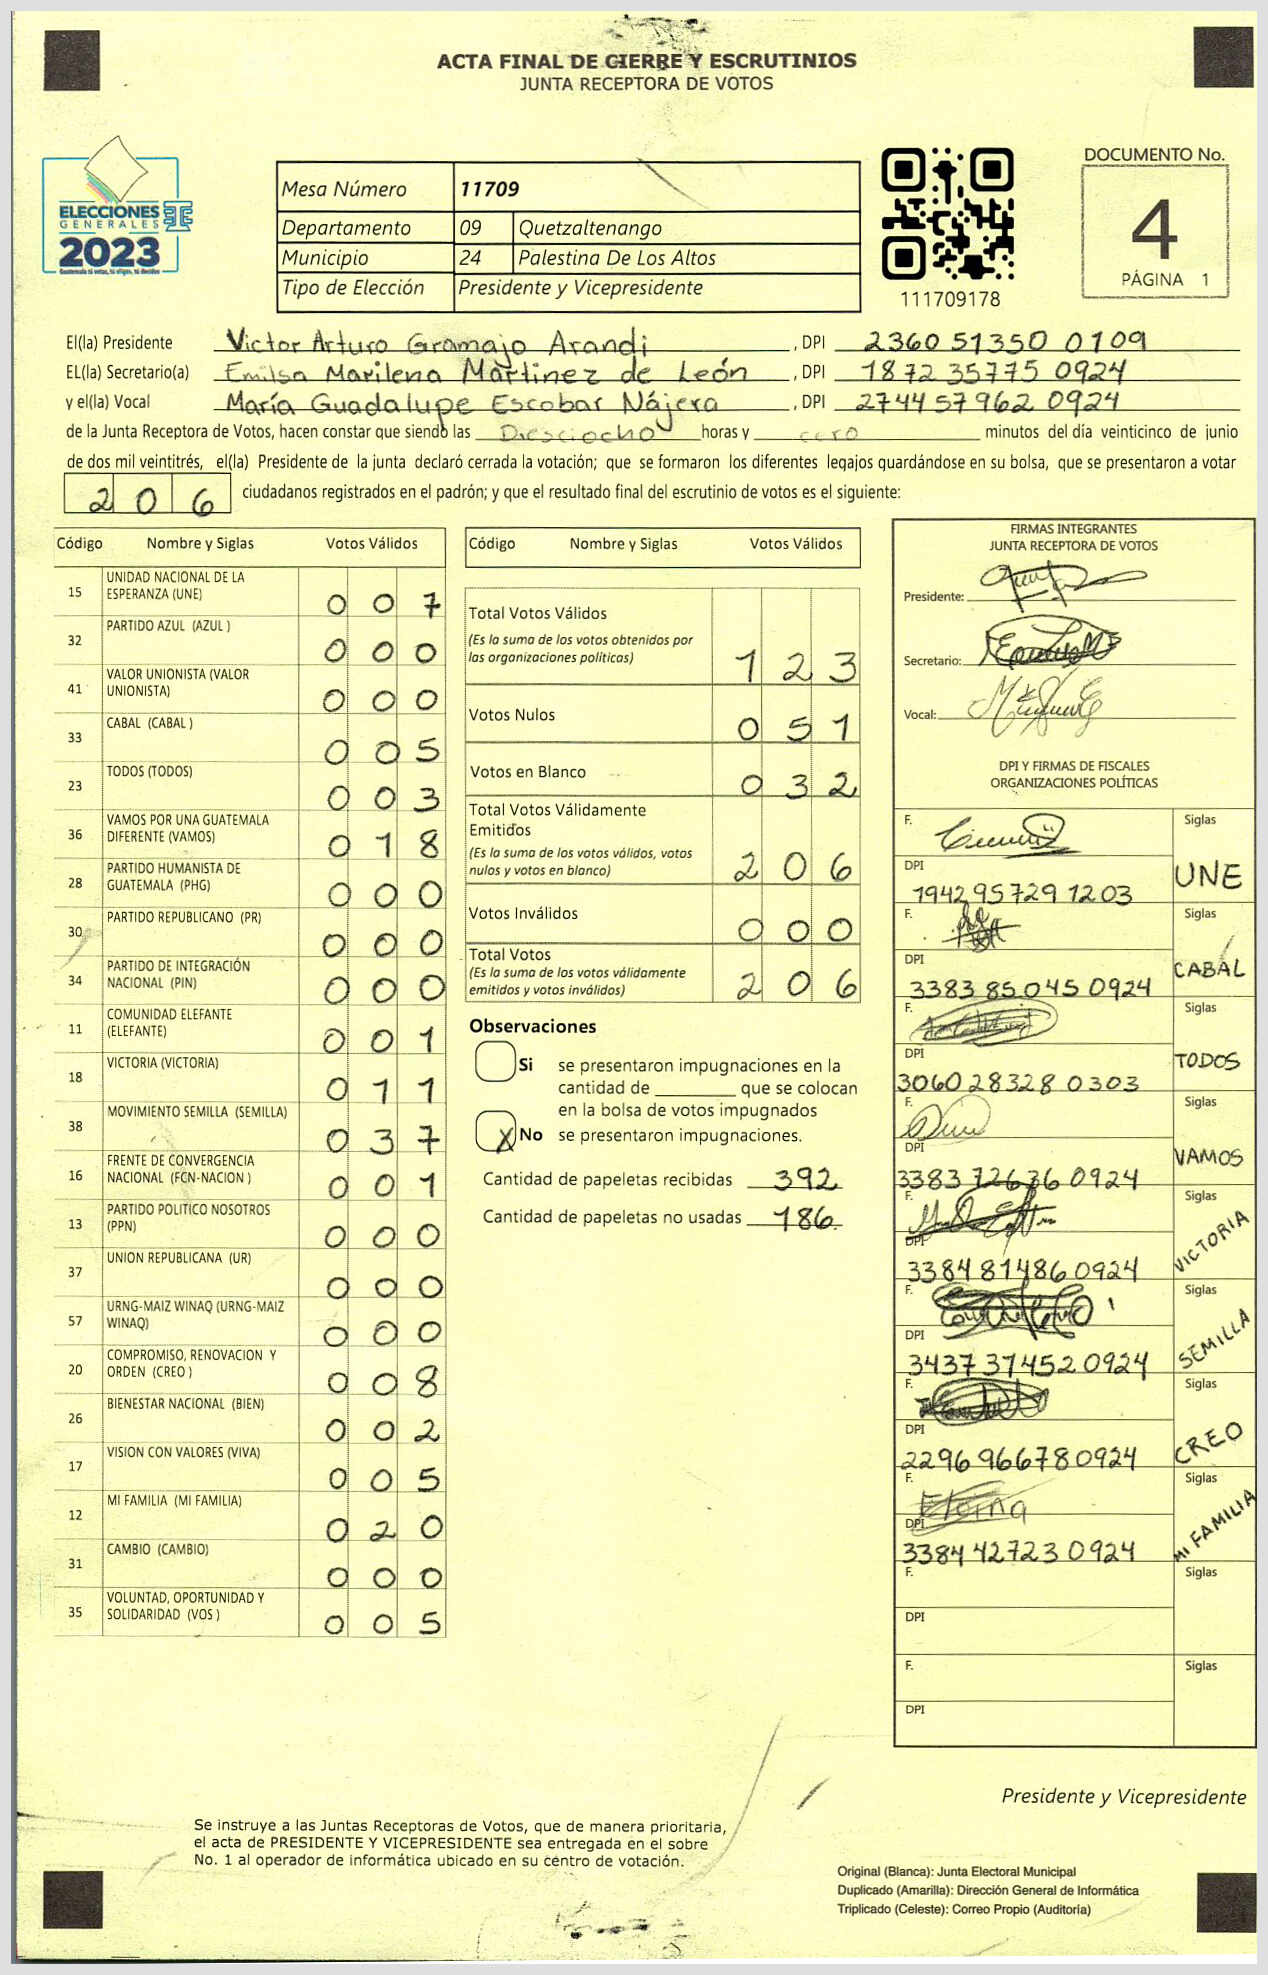 ACTA FINAL DE CIERRE Y ESCRUTINIOS
JUNTA RECEPTORA DE VOTOS
ELECCIONES
GENERALES
2023
Guatemala tú votas, tú eliges, tú decides
Mesa Número 11709
Departamento 09 Quetzaltenango
Municipio 24 Palestina De Los Altos
Tipo de Elección Presidente y Vicepresidente
111709178
DOCUMENTO No.
4
PÁGINA 1
El(la) Presidente Victor Arturo Gramajo Arandi , DPI 2360 51350 0109
EL(la) Secretario(a) Emilsa Marilena Martinez de León , DPI 1872 35775 0924
y el(la) Vocal María Guadalupe Escobar Nájera , DPI 2744 57962 0924
de la Junta Receptora de Votos, hacen constar que siendo las Diesciocho horas y cero minutos del día veinticinco de junio
de dos mil veintitrés, el(la) Presidente de la junta declaró cerrada la votación; que se formaron los diferentes legajos guardándose en su bolsa, que se presentaron a votar
206 ciudadanos registrados en el padrón; y que el resultado final del escrutinio de votos es el siguiente:
Código Nombre y Siglas Votos Válidos
15 UNIDAD NACIONAL DE LA ESPERANZA (UNE) 007
32 PARTIDO AZUL (AZUL ) 000
41 VALOR UNIONISTA (VALOR UNIONISTA) 000
33 CABAL (CABAL ) 005
23 TODOS (TODOS) 003
36 VAMOS POR UNA GUATEMALA DIFERENTE (VAMOS) 018
28 PARTIDO HUMANISTA DE GUATEMALA (PHG) 000
30 PARTIDO REPUBLICANO (PR) 000
34 PARTIDO DE INTEGRACIÓN NACIONAL (PIN) 000
11 COMUNIDAD ELEFANTE (ELEFANTE) 001
18 VICTORIA (VICTORIA) 011
38 MOVIMIENTO SEMILLA (SEMILLA) 037
16 FRENTE DE CONVERGENCIA NACIONAL (FCN-NACION ) 001
13 PARTIDO POLITICO NOSOTROS (PPN) 000
37 UNION REPUBLICANA (UR) 000
57 URNG-MAIZ WINAQ (URNG-MAIZ WINAQ) 000
20 COMPROMISO, RENOVACION Y ORDEN (CREO ) 008
26 BIENESTAR NACIONAL (BIEN) 002
17 VISION CON VALORES (VIVA) 005
12 MI FAMILIA (MI FAMILIA) 020
31 CAMBIO (CAMBIO) 000
35 VOLUNTAD, OPORTUNIDAD Y SOLIDARIDAD (VOS ) 005
Código Nombre y Siglas Votos Válidos
Total Votos Válidos
(Es la suma de los votos obtenidos por
las organizaciones políticas) 123
Votos Nulos 051
Votos en Blanco 032
Total Votos Válidamente
Emitidos
(Es la suma de los votos válidos, votos
nulos y votos en blanco) 206
Votos Inválidos 000
Total Votos
(Es la suma de los votos válidamente
emitidos y votos inválidos) 206
Observaciones
Si se presentaron impugnaciones en la
cantidad de ________ que se colocan
en la bolsa de votos impugnados
X No se presentaron impugnaciones.
Cantidad de papeletas recibidas 392
Cantidad de papeletas no usadas 186
FIRMAS INTEGRANTES
JUNTA RECEPTORA DE VOTOS
Presidente:
Secretario:
Vocal:
DPI Y FIRMAS DE FISCALES
ORGANIZACIONES POLÍTICAS
F. Siglas
DPI 1942 95729 1203 UNE
F. Siglas
DPI 3383 85045 0924 CABAL
F. Siglas
DPI 3060 28328 0303 TODOS
F. Siglas
DPI 3383 72636 0924 VAMOS
F. Siglas
DPI 3384 81486 0924 VICTORIA
F. Siglas
DPI 3437 37452 0924 SEMILLA
F. Siglas
DPI 2296 96678 0924 CREO
F. Siglas
DPI 3384 42723 0924 MI FAMILIA
F. Siglas
DPI
F. Siglas
DPI
Presidente y Vicepresidente
Se instruye a las Juntas Receptoras de Votos, que de manera prioritaria,
el acta de PRESIDENTE Y VICEPRESIDENTE sea entregada en el sobre
No. 1 al operador de informática ubicado en su centro de votación.
Original (Blanca): Junta Electoral Municipal
Duplicado (Amarilla): Dirección General de Informática
Triplicado (Celeste): Correo Propio (Auditoría)